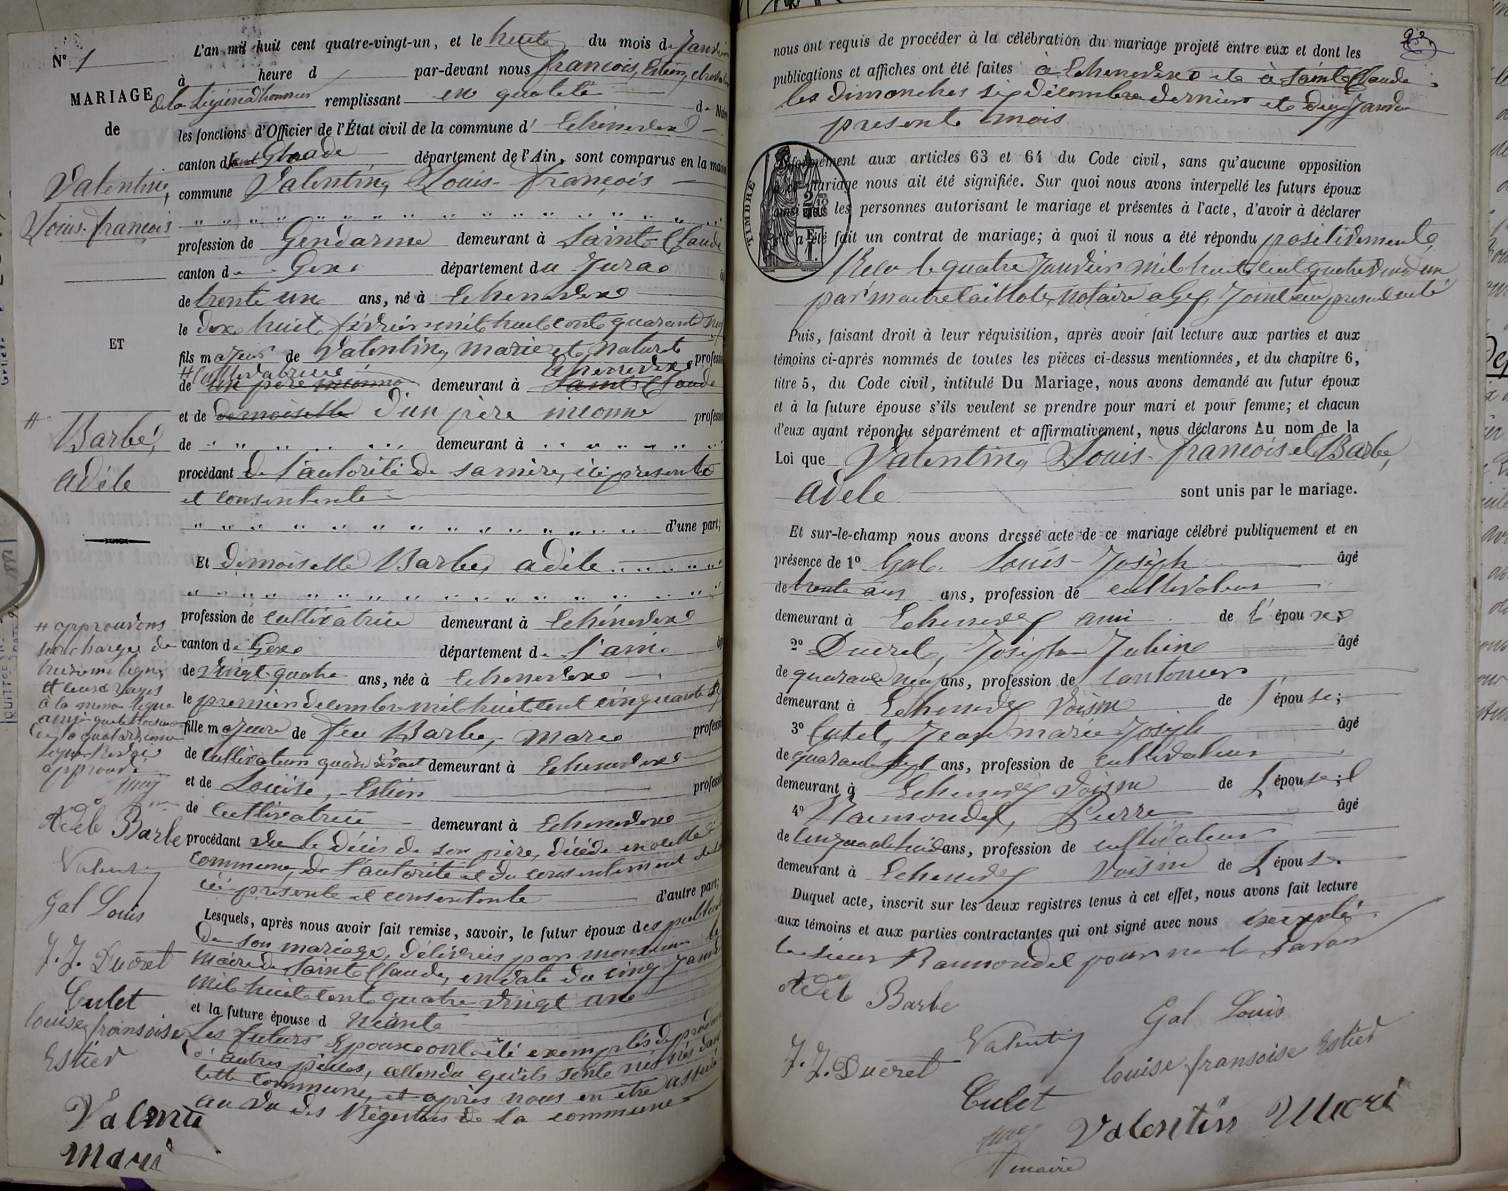 N° 1
MARIAGE
de
Valentin,
Louis-françois
ET
Barbe,
adèle
# approuvons
Adèle Barbe
Valentin
Gal Louis
J. J. Ducret
Culet
louise fransoise
Estier
Valentin
Mari
L'an mil huit cent quatre-vingt-un, et le huit du mois de Janvier
à heure d par-devant nous françois, Estier, chevalier
de la Légion d'honneur remplissant en qualité de Maire
les fonctions d'Officier de l'État civil de la commune d' Echenevex
canton de département de l'Ain, sont comparus en la maison
commune Valentin, Louis-françois
profession de Gendarme demeurant à Saint-Claude
canton d département du Jura
de trente un ans, né à Echenevex
le dix huit février mil huit cent quarante neuf
fils majeur de Valentin, marie et naturel profession
# Cultivatrice Echenevex
de un père inconnu demeurant à Saint Claude
et de demoiselle d'un père inconnu profession
de demeurant à
procédant de l'autorité de sa mère, ici présente
et consentente
d'une part;
Et demoiselle Barbe, adèle
profession de cultivatrice demeurant à Echenevex
canton de Gex département de l'ain
de vingt quatre ans, née à Echenevex
le premier décembre mil huit cent cinquante six
fille majeure de feu Barbe, marie profession
de cultivateur quand vivait demeurant à Echenevex
et de Louise, Estier profession
de cultivatrice demeurant à Echenevex
procédant vu le décès de son père, décédé en cette
commune, de l'autorité et du consentement de sa
ici présente et consentente d'autre part;
Lesquels, après nous avoir fait remise, savoir, le futur époux des publications
de son mariage, délivrées par monsieur le
maire de Saint Claude, en date du cinq Janvier
mil huit cent quatre vingt un
et la future épouse d Néant
Les futurs Epoux ont été exemptés de produire
d'autres pièces, attendu qu'ils sont nés dans
cette commune, et après nous en être assuré
au vu des Régistres de la commune
nous ont requis de procéder à la célébration du mariage projeté entre eux et dont les
publications et affiches ont été faites à Echenevex et à Saint Claude
les dimanches six décembre dernier et deux Janvier
présent mois
TIMBRE
Conformément aux articles 63 et 64 du Code civil, sans qu'aucune opposition
mariage nous ait été signifiée. Sur quoi nous avons interpellé les futurs époux
ainsi que les personnes autorisant le mariage et présentes à l'acte, d'avoir à déclarer
s'il a été fait un contrat de mariage; à quoi il nous a été répondu positivement
Reçu le quatre Janvier mil huit cent quatre vingt un
par maitre notaire à Gex, Joint au présent acte
Puis, faisant droit à leur réquisition, après avoir fait lecture aux parties et aux
témoins ci-après nommés de toutes les pièces ci-dessus mentionnées, et du chapitre 6,
titre 5, du Code civil, intitulé Du Mariage, nous avons demandé au futur époux
et à la future épouse s'ils veulent se prendre pour mari et pour femme; et chacun
d'eux ayant répondu séparément et affirmativement, nous déclarons Au nom de la
Loi que Valentin, Louis-françois et Barbe,
adèle sont unis par le mariage.
Et sur-le-champ nous avons dressé acte de ce mariage célébré publiquement et en
présence de 1° Gal. Louis-Joseph âgé
de trente six ans, profession de cultivateur
demeurant à Echenevex ami de l'époux;
2° Ducret, Joseph Julien âgé
de quarante neuf ans, profession de cantonier
demeurant à Echenevex voisin de l'épouse;
3° Culet, Jean marie Joseph âgé
de quarante sept ans, profession de cultivateur
demeurant à Echenevex voisin de L'épouse; et
4° Raimondel, Pierre âgé
de cinquante huit ans, profession de cultivateur
demeurant à Echenevex voisin de L'épouse.
Duquel acte, inscrit sur les deux registres tenus à cet effet, nous avons fait lecture
aux témoins et aux parties contractantes qui ont signé avec nous excepté
le sieur Raimondel pour ne le savoir
Adèle Barbe
Valentin
Gal Louis
J. J. Ducret
louise fransoise Estier
Culet
Valentin Mari
maire